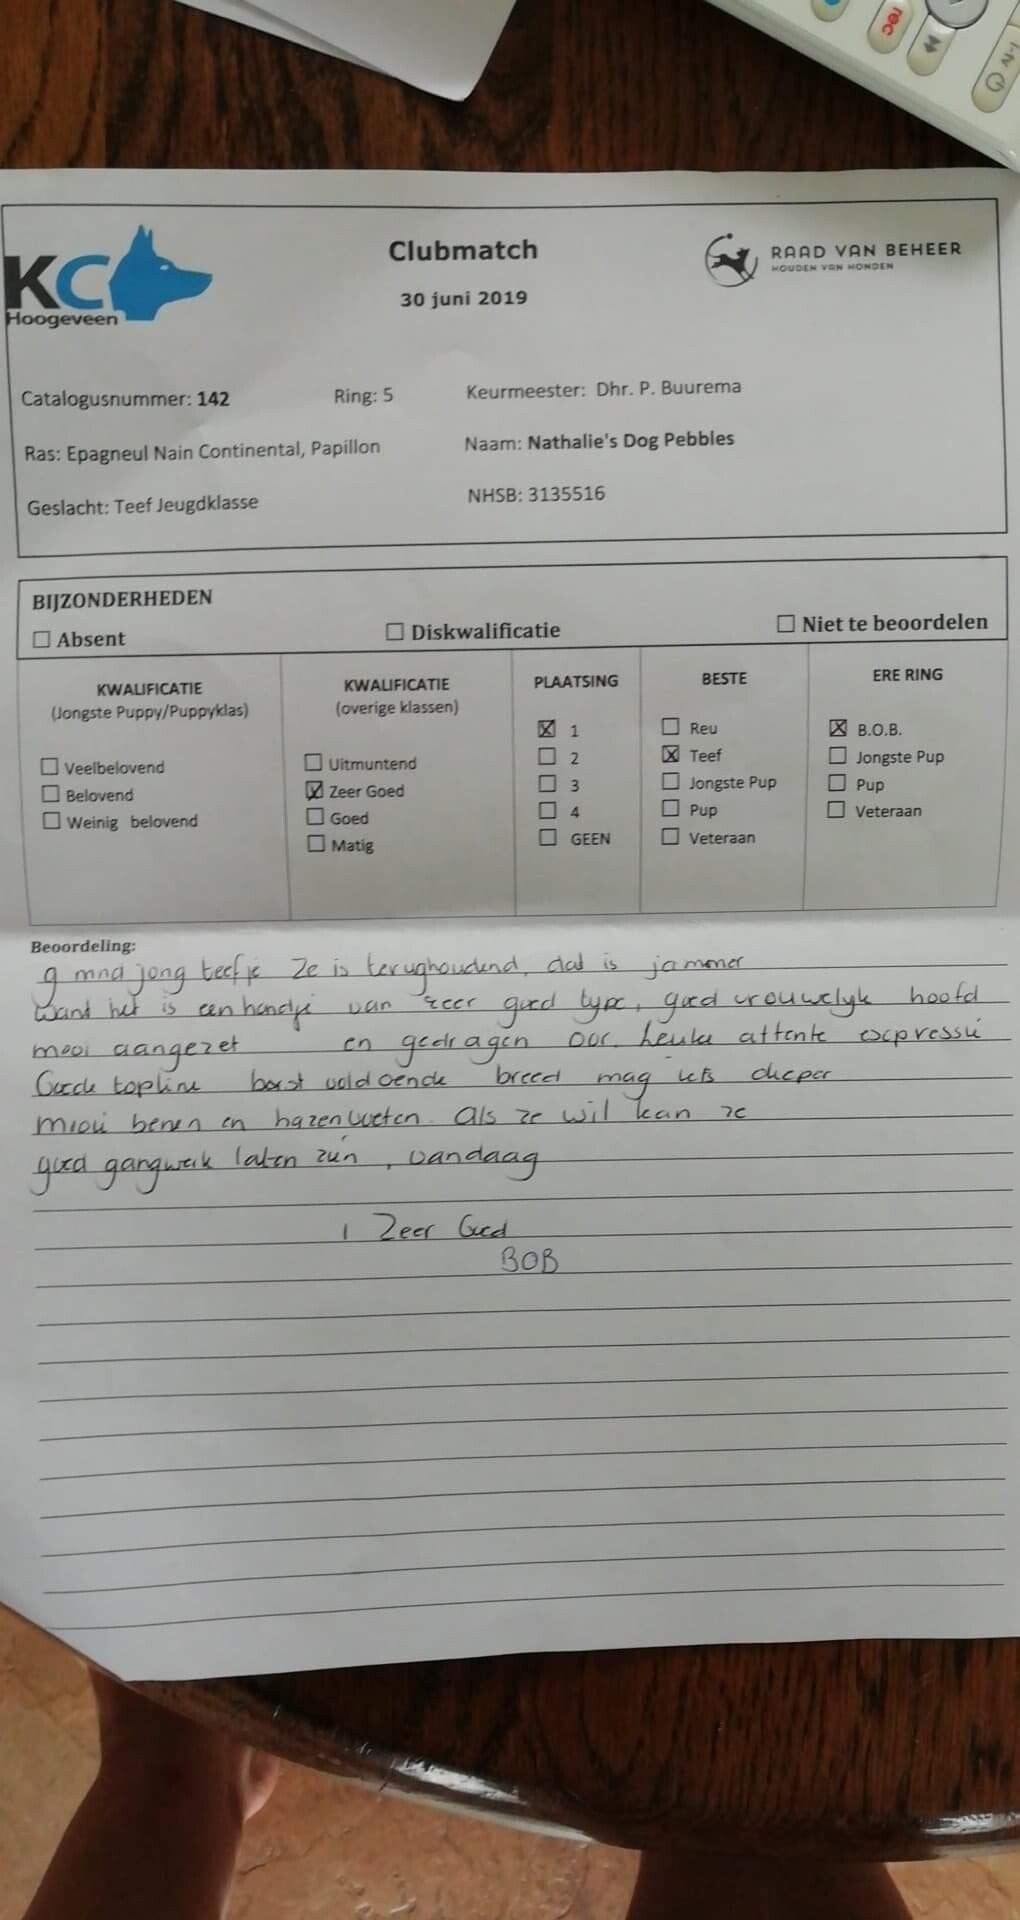 rec
KC
Hoogeveen
Clubmatch
30 juni 2019
RAAD VAN BEHEER
HOUDEN VAN HONDEN
Catalogusnummer: 142 Ring: 5 Keurmeester: Dhr. P. Buurema
Ras: Epagneul Nain Continental, Papillon Naam: Nathalie's Dog Pebbles
Geslacht: Teef Jeugdklasse NHSB: 3135516
BIJZONDERHEDEN
☐ Absent ☐ Diskwalificatie ☐ Niet te beoordelen
KWALIFICATIE
(Jongste Puppy/Puppyklas)
☐ Veelbelovend
☐ Belovend
☐ Weinig belovend
KWALIFICATIE
(overige klassen)
☐ Uitmuntend
☒ Zeer Goed
☐ Goed
☐ Matig
PLAATSING
☒ 1
☐ 2
☐ 3
☐ 4
☐ GEEN
BESTE
☐ Reu
☒ Teef
☐ Jongste Pup
☐ Pup
☐ Veteraan
ERE RING
☒ B.O.B.
☐ Jongste Pup
☐ Pup
☐ Veteraan
Beoordeling:
9 mnd jong teefje Ze is terughoudend, dat is jammer
Want het is een hondje van zeer goed type, goed vrouwelyk hoofd
mooi aangezet en gedragen oor. Leuke attente expressie
Goede topline borst voldoende breed mag iets dieper
mooi benen en hazenvoeten. Als ze wil kan ze
goed gangwerk laten zien, vandaag
1 Zeer Goed
BOB